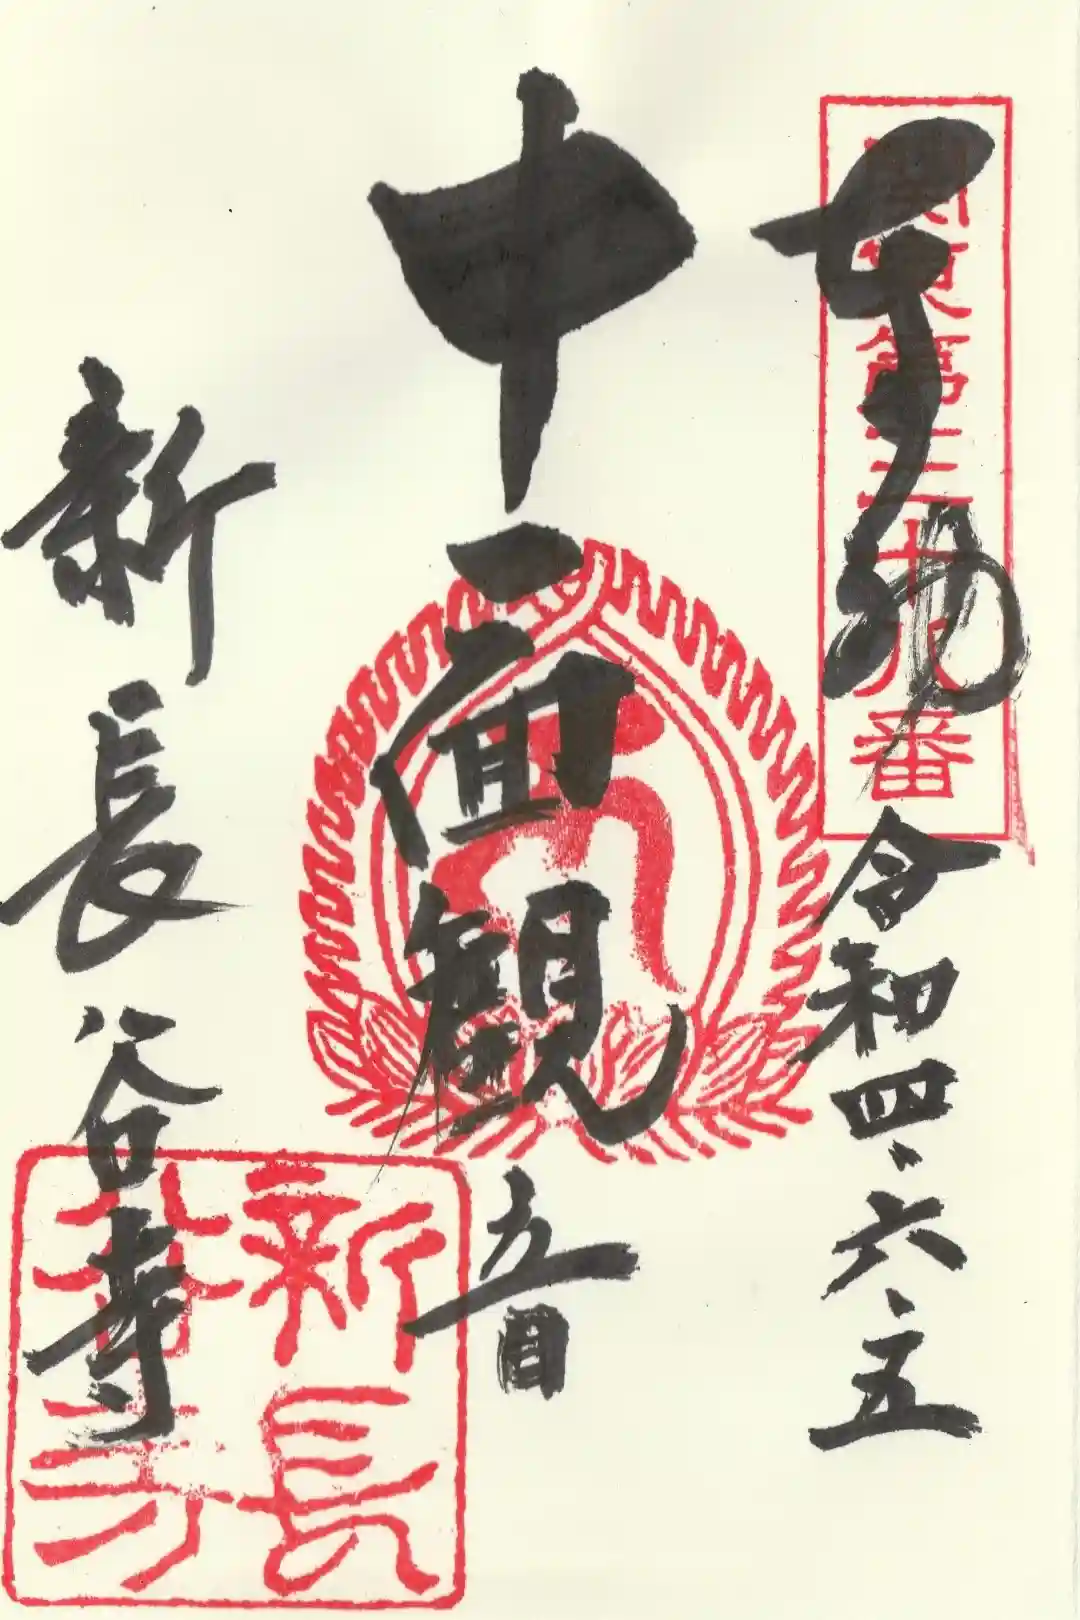 奉拝
関東第三十八番
令和四、六、五
十一面観音
新長谷寺
新長谷寺